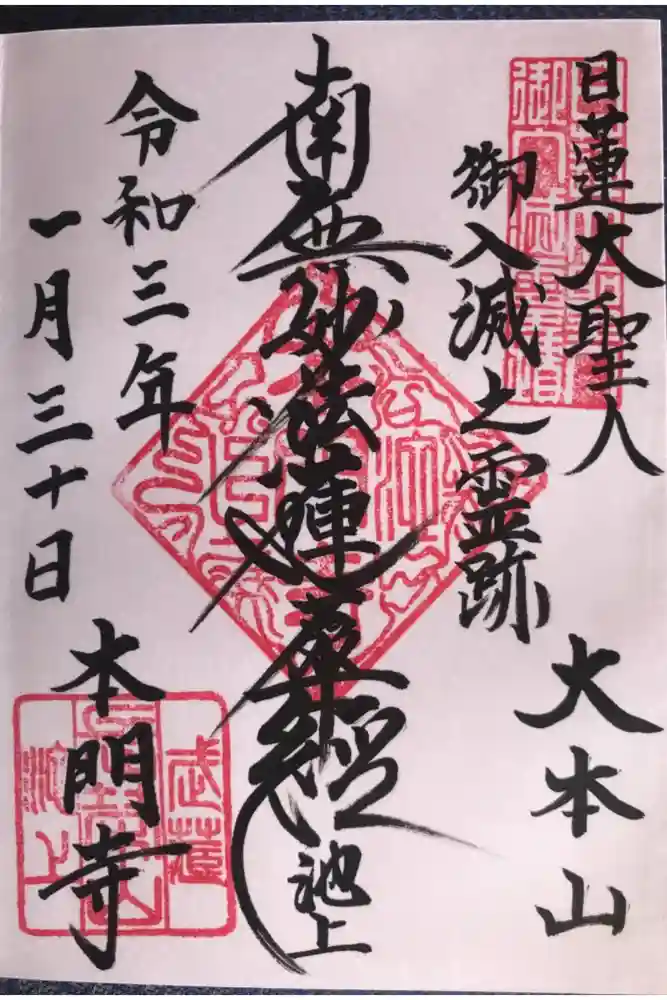 日蓮大聖人
御入滅之霊跡
大本山
南無妙法蓮華経
池上
令和三年
一月三十日
本門寺